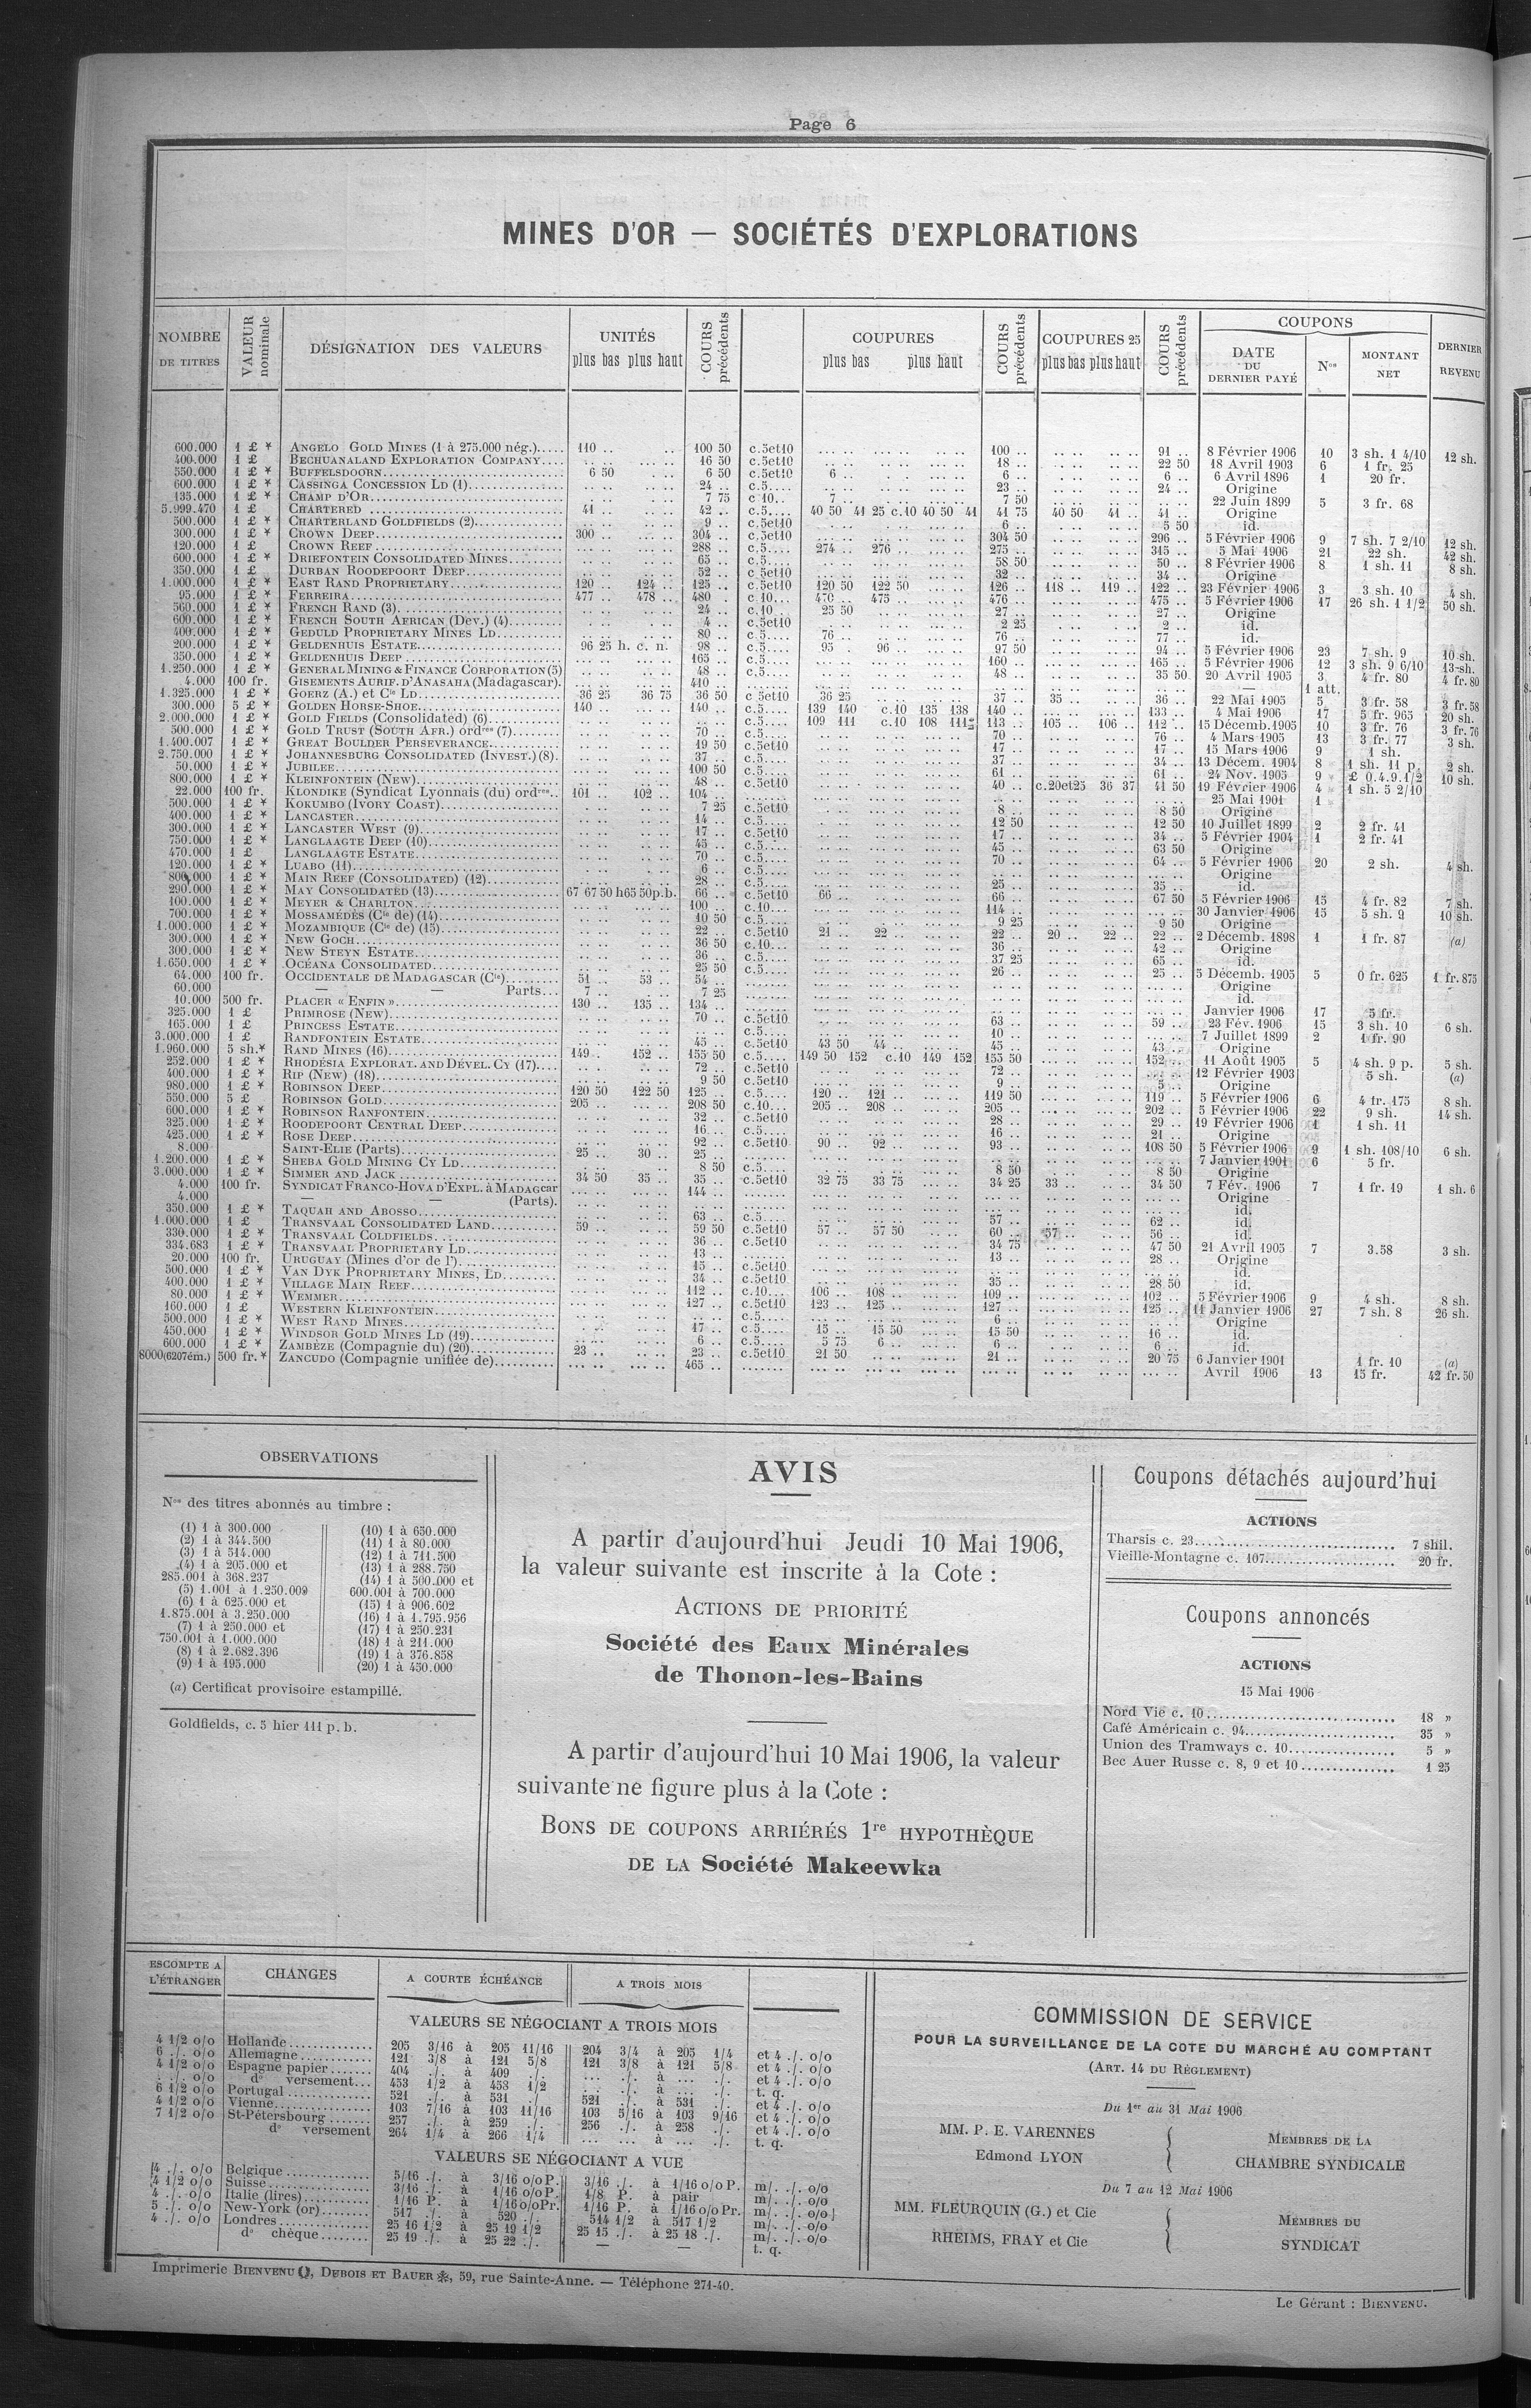 Page 6
MINES D'OR — SOCIÉTÉS D'EXPLORATIONS
NOMBRE DE TITRES
VALEUR nominale
DÉSIGNATION DES VALEURS
UNITÉS
plus bas plus haut
COURS précédents
COUPURES
plus bas plus haut
COURS précédents
COUPURES 25
plus bas plus haut
COURS précédents
COUPONS
DATE DU DERNIER PAYÉ
Nos
MONTANT NET
DERNIER REVENU
600.000 1 £ * ANGELO GOLD MINES (1 à 275.000 nég.)..... 110 .. 100 50 c.5et10 100 .. 91 .. 8 Février 1906 10 3 sh. 1 4/10 12 sh.
400.000 1 £ BECHUANALAND EXPLORATION COMPANY.... 16 50 c.5et10 18 .. 22 50 18 Avril 1903 6 1 fr. 25
550.000 1 £ * BUFFELSDOORN 6 50 6 50 c.5et10 6 .. 6 .. 6 .. 6 Avril 1896 1 20 fr.
600.000 1 £ * CASSINGA CONCESSION LD (1) 24 .. c.5.... 23 .. 24 .. Origine
135.000 1 £ * CHAMP D'OR 7 75 c 10.. 7 .. 7 50 22 Juin 1899 5 3 fr. 68
5.999.470 1 £ CHARTERED 41 .. 42 .. c.5.... 40 50 41 25 c.10 40 50 41 41 75 40 50 41 .. 41 .. Origine
500.000 1 £ * CHARTERLAND GOLDFIELDS (2) 9 .. c.5et10 6 .. 5 50 id.
300.000 1 £ * CROWN DEEP 300 .. 304 .. c.5et10 304 50 296 .. 5 Février 1906 9 7 sh. 7 2/10 12 sh.
120.000 1 £ CROWN REEF 288 .. c.5.... 274 .. 276 .. 275 .. 315 .. 5 Mai 1906 21 22 sh. 42 sh.
600.000 1 £ * DRIEFONTEIN CONSOLIDATED MINES 65 .. c.5.... 58 50 50 .. 8 Février 1906 8 1 sh. 11 8 sh.
350.000 1 £ DURBAN ROODEPOORT DEEP 52 .. c.5et10 32 .. 34 .. Origine
1.000.000 1 £ * EAST RAND PROPRIETARY 120 .. 124 .. 125 .. c.5et10 120 50 122 50 126 .. 118 .. 119 .. 122 .. 23 Février 1906 3 3 sh. 10 4 sh.
95.000 1 £ * FERREIRA 477 .. 478 .. 480 c.10... 470 .. 475 .. 476 .. 475 .. 5 Février 1906 17 26 sh. 1 1/2 50 sh.
560.000 1 £ * FRENCH RAND (3) 24 .. c.10... 25 50 27 .. 27 .. Origine
600.000 1 £ * FRENCH SOUTH AFRICAN (Dev.) (4) 4 .. c.5et10 2 25 2 .. id.
400.000 1 £ * GEDULD PROPRIETARY MINES LD 80 .. c.5.... 76 .. 76 .. 77 .. id.
200.000 1 £ * GELDENHUIS ESTATE 96 25 h. c. n. 98 .. c.5.... 95 . 96 .. 97 50 94 .. 5 Février 1906 23 7 sh. 9 10 sh.
350.000 1 £ * GELDENHUIS DEEP 165 .. c.5.... 160 .. 165 .. 5 Février 1906 12 3 sh. 9 6/10 13 sh.
1.250.000 1 £ * GENERAL MINING & FINANCE CORPORATION (5) 48 .. c.5.... 48 .. 35 50 20 Avril 1905 3 4 fr. 80 4 fr. 80
4.000 100 fr. GISEMENTS AURIF. D'ANASAHA (Madagascar). 410 .. — 1 att.
1.325.000 1 £ * GOERZ (A.) et Cie LD 36 25 36 75 36 50 c 5et10 36 25 37 .. 35 .. 36 .. 22 Mai 1905 5 3 fr. 58 3 fr. 58
300.000 5 £ * GOLDEN HORSE-SHOE 140 .. 140 .. c.5.... 139 140 c.10 135 138 140 .. 133 .. 4 Mai 1906 17 5 fr. 965 20 sh.
2.000.000 1 £ * GOLD FIELDS (Consolidated) (6) c.5.... 109 111 c.10 108 113 .. 105 .. 106 .. 112 .. 15 Décemb. 1905 10 3 fr. 76 3 fr. 76
500.000 1 £ * GOLD TRUST (SOUTH AFR.) ordres (7) 70 .. c.5.... 70 .. 76 .. 4 Mars 1905 13 3 fr. 77 3 sh.
1.400.007 1 £ * GREAT BOULDER PERSEVERANCE 19 50 c.5et10 17 .. 17 .. 15 Mars 1906 9 1 sh.
2.750.000 1 £ * JOHANNESBURG CONSOLIDATED (INVEST.) (8). 37 .. c.5.... 37 .. 34 .. 13 Décem. 1904 8 1 sh. 11 p. 2 sh.
50.000 1 £ * JUBILEE 100 50 c.5.... 61 .. 61 .. 24 Nov. 1905 9 £ 0.4.9.1/2 10 sh.
800.000 1 £ * KLEINFONTEIN (New) 48 .. c.5et10 40 .. c.20et25 36 37 41 50 19 Février 1906 4 1 sh. 5 2/10
22.000 100 fr. KLONDIKE (Syndicat Lyonnais (du) ordres.. 101 .. 102 .. 104 .. 25 Mai 1901 1
500.000 1 £ * KOKUMBO (IVORY COAST) 7 25 c.5et10 8 .. 8 50 Origine
400.000 1 £ * LANCASTER 14 .. c.5.... 12 50 12 50 10 Juillet 1899 2 2 fr. 41
300.000 1 £ * LANCASTER WEST (9) 17 .. c.5et10 17 .. 34 .. 5 Février 1904 1 2 fr. 41
750.000 1 £ * LANGLAAGTE DEEP (10) 45 .. c.5.... 45 .. 63 50 Origine
470.000 1 £ LANGLAAGTE ESTATE 70 .. c.5.... 70 .. 64 .. 5 Février 1906 20 2 sh. 4 sh.
120.000 1 £ * LUABO (11) 6 .. c.5.... Origine
1 £ * MAIN REEF (CONSOLIDATED) (12) 28 .. c.5.... 25 .. 35 .. id.
290.000 1 £ * MAY CONSOLIDATED (13) 67 67 50 h65 50p.b. 66 .. c.5et10 66 .. 66 .. 67 50 5 Février 1906 15 4 fr. 82 7 sh.
100.000 1 £ * MEYER & CHARLTON 100 .. c.10... 114 .. 30 Janvier 1906 15 5 sh. 9 10 sh.
700.000 1 £ * MOSSAMÉDÈS (Cie de) (14) 10 50 c.5.... 9 25 9 50 Origine
1.000.000 1 £ * MOZAMBIQUE (Cie de) (15) 22 .. c.5et10 21 .. 22 .. 22 .. 20 .. 22 .. 22 .. 2 Décemb. 1898 1 1 fr. 87 (a)
300.000 1 £ * NEW GOCH 36 50 c.10... 36 .. 42 .. Origine
300.000 1 £ * NEW STEYN ESTATE 36 .. c.5.... 37 25 65 .. id.
1.650.000 1 £ * OCÉANA CONSOLIDATED 25 50 c.5.... 26 .. 25 .. 5 Décemb. 1905 5 0 fr. 625 1 fr. 875
64.000 100 fr. OCCIDENTALE DE MADAGASCAR (Cie) 51 .. 53 .. 54 .. Origine
60.000 — — Parts... 7 .. 7 25 id.
10.000 500 fr. PLACER « ENFIN » 130 .. 135 .. 134 .. Janvier 1906 17 5 fr.
325.000 1 £ PRIMROSE (NEW) 70 .. c.5et10 63 .. 59 .. 23 Fév. 1906 15 3 sh. 10 6 sh.
165.000 1 £ PRINCESS ESTATE c.5.... 10 .. 7 Juillet 1899 2 1 fr. 90
3.000.000 1 £ RANDFONTEIN ESTATE 45 .. c.5et10 43 50 44 .. 45 .. 43 .. Origine
1.960.000 5 sh.* RAND MINES (16) 149 .. 152 .. 155 50 c.5.... 149 50 152 c.10 149 152 155 50 152 .. 11 Août 1905 5 4 sh. 9 p. 5 sh.
252.000 1 £ * RHODÉSIA EXPLORAT. AND DÉVEL. CY (17).... 72 .. c.5et10 72 .. 12 Février 1903 5 sh. (a)
400.000 1 £ * RIP (NEW) (18) 9 50 c.5et10 9 .. 5 .. Origine
980.000 1 £ * ROBINSON DEEP 120 50 122 50 125 .. c.5.... 120 .. 121 .. 119 50 119 .. 5 Février 1906 6 4 fr. 175 8 sh.
550.000 5 £ ROBINSON GOLD 205 .. 208 50 c.10... 205 .. 208 .. 205 .. 202 .. 5 Février 1906 22 9 sh. 14 sh.
600.000 1 £ * ROBINSON RANFONTEIN 32 .. c.5et10 28 .. 29 .. 19 Février 1906 1 1 sh. 11
325.000 1 £ * ROODEPOORT CENTRAL DEEP 16 .. c.5.... 16 .. 21 .. Origine
425.000 1 £ * ROSE DEEP 92 .. c.5et10 90 .. 92 .. 93 .. 108 50 5 Février 1906 9 1 sh. 108/10 6 sh.
8.000 SAINT-ELIE (Parts) 25 .. 30 .. 25 .. 7 Janvier 1901 6 5 fr.
1.200.000 1 £ * SHEBA GOLD MINING CY LD 8 50 c.5.... 8 50 8 50 Origine
3.000.000 1 £ * SIMMER AND JACK 34 50 35 .. 35 .. c.5et10 32 75 33 75 34 25 33 .. 34 50 7 Fév. 1906 7 1 fr. 19 1 sh. 6
4.000 100 fr. SYNDICAT FRANCO-HOVA D'EXPL. à MADAGcar 144 .. Origine
4.000 — — (Parts). id.
350.000 1 £ * TAQUAH AND ABOSSO 63 .. c.5.... 57 .. 62 .. id.
1.000.000 1 £ TRANSVAAL CONSOLIDATED LAND 59 .. 59 50 c.5et10 57 .. 57 50 60 .. 57 .. 56 .. id.
330.000 1 £ * TRANSVAAL COLDFIELDS 36 .. c.5et10 34 75 47 50 21 Avril 1905 7 3.58 3 sh.
334.683 1 £ * TRANSVAAL PROPRIETARY LD 13 .. 13 .. 28 .. Origine
20.000 100 fr. URUGUAY (Mines d'or de l') 15 .. c.5et10 id.
500.000 1 £ * VAN DYK PROPRIETARY MINES, LD 34 .. c.5et10 35 .. 28 50 id.
400.000 1 £ * VILLAGE MAIN REEF 112 .. c.10... 106 .. 108 .. 109 .. 102 .. 5 Février 1906 9 4 sh. 8 sh.
80.000 1 £ * WEMMER 127 .. c.5et10 123 .. 125 .. 127 .. 125 .. 11 Janvier 1906 27 7 sh. 8 26 sh.
160.000 1 £ WESTERN KLEINFONTEIN c.5.... 6 .. Origine
500.000 1 £ * WEST RAND MINES 17 .. c.5.... 15 .. 15 50 15 50 16 .. id.
450.000 1 £ * WINDSOR GOLD MINES LD (19) 6 .. c.5.... 5 75 6 .. 6 .. 6 .. id.
600.000 1 £ * ZAMBÈZE (Compagnie du) (20) 23 .. 23 .. c.5et10 21 50 21 .. 20 75 6 Janvier 1901 1 fr. 10 (a)
8000(6207ém.) 500 fr.* ZANCUDO (Compagnie unifiée de) 465 .. Avril 1906 13 15 fr. 42 fr. 50
OBSERVATIONS
Nos des titres abonnés au timbre :
(1) 1 à 300.000
(2) 1 à 344.500
(3) 1 à 514.000
(4) 1 à 205.000 et
285.001 à 368.237
(5) 1.001 à 1.250.009
(6) 1 à 625.000 et
1.875.001 à 3.250.000
(7) 1 à 250.000 et
750.001 à 1.000.000
(8) 1 à 2.682.396
(9) 1 à 195.000
(10) 1 à 650.000
(11) 1 à 80.000
(12) 1 à 711.500
(13) 1 à 288.750
(14) 1 à 500.000 et
600.001 à 700.000
(15) 1 à 906.602
(16) 1 à 1.795.956
(17) 1 à 250.231
(18) 1 à 211.000
(19) 1 à 376.858
(20) 1 à 450.000
(a) Certificat provisoire estampillé.
Goldfields, c. 5 hier 111 p. b.
AVIS
A partir d'aujourd'hui Jeudi 10 Mai 1906,
la valeur suivante est inscrite à la Cote :
ACTIONS DE PRIORITÉ
Société des Eaux Minérales
de Thonon-les-Bains
A partir d'aujourd'hui 10 Mai 1906, la valeur
suivante ne figure plus à la Cote :
BONS DE COUPONS ARRIÉRÉS 1re HYPOTHÈQUE
DE LA Société Makeewka
Coupons détachés aujourd'hui
ACTIONS
Tharsis c. 23 7 shil.
Vieille-Montagne c. 107 20 fr.
Coupons annoncés
ACTIONS
15 Mai 1906
Nord Vie c. 10 18 »
Café Américain c. 94 35 »
Union des Tramways c. 10 5 »
Bec Auer Russe c. 8, 9 et 10 1 25
ESCOMPTE A L'ÉTRANGER
CHANGES
A COURTE ÉCHÉANCE
A TROIS MOIS
VALEURS SE NÉGOCIANT A TROIS MOIS
4 1/2 o/o Hollande 205 3/16 à 205 11/16 204 3/4 à 205 1/4 et 4 ./. o/o
6 ./. o/o Allemagne 121 3/8 à 121 5/8 121 3/8 à 121 5/8 et 4 ./. o/o
4 1/2 o/o Espagne papier 404 ./. à 409 ./. ... ./. à ... ./. et 4 ./. o/o
. ./. o/o do versement... 453 1/2 à 453 1/2 ... ./. à ... ./. t. q.
6 1/2 o/o Portugal 521 ./. à 531 ./. 521 ./. à 531 ./. et 4 ./. o/o
4 1/2 o/o Vienne 103 7/16 à 103 11/16 103 5/16 à 103 9/16 et 4 ./. o/o
7 1/2 o/o St-Pétersbourg 257 ./. à 259 ./. 256 ./. à 258 ./. et 4 ./. o/o
do versement 264 1/4 à 266 1/4 ... à ... ./. t. q.
VALEURS SE NÉGOCIANT A VUE
4 ./. o/o Belgique 5/16 ./. à 3/16 o/o P. 3/16 ./. à 1/16 o/o P. m/. ./. o/o
4 1/2 o/o Suisse 3/16 ./. à 1/16 o/o P. 1/8 P. à pair m/. ./. o/o
4 ./. o/o Italie (lires) 1/16 P. à 1/16 o/o Pr. 1/16 P. à 1/16 o/o Pr. m/. ./. o/o
5 ./. o/o New-York (or) 517 ./. à 520 ./. 514 1/2 à 517 1/2 m/. ./. o/o
4 ./. o/o Londres 25 16 1/2 à 25 19 1/2 25 15 ./. à 25 18 ./. m/. ./. o/o
do chèque 25 19 ./. à 25 22 ./. — — t. q.
COMMISSION DE SERVICE
POUR LA SURVEILLANCE DE LA COTE DU MARCHÉ AU COMPTANT
(ART. 14 DU RÈGLEMENT)
Du 1er au 31 Mai 1906
MM. P. E. VARENNES
Edmond LYON
MEMBRES DE LA
CHAMBRE SYNDICALE
Du 7 au 12 Mai 1906
MM. FLEURQUIN (G.) et Cie
RHEIMS, FRAY et Cie
MEMBRES DU
SYNDICAT
Imprimerie BIENVENU, DUBOIS ET BAUER, 59, rue Sainte-Anne. — Téléphone 271-40.
Le Gérant : BIENVENU.